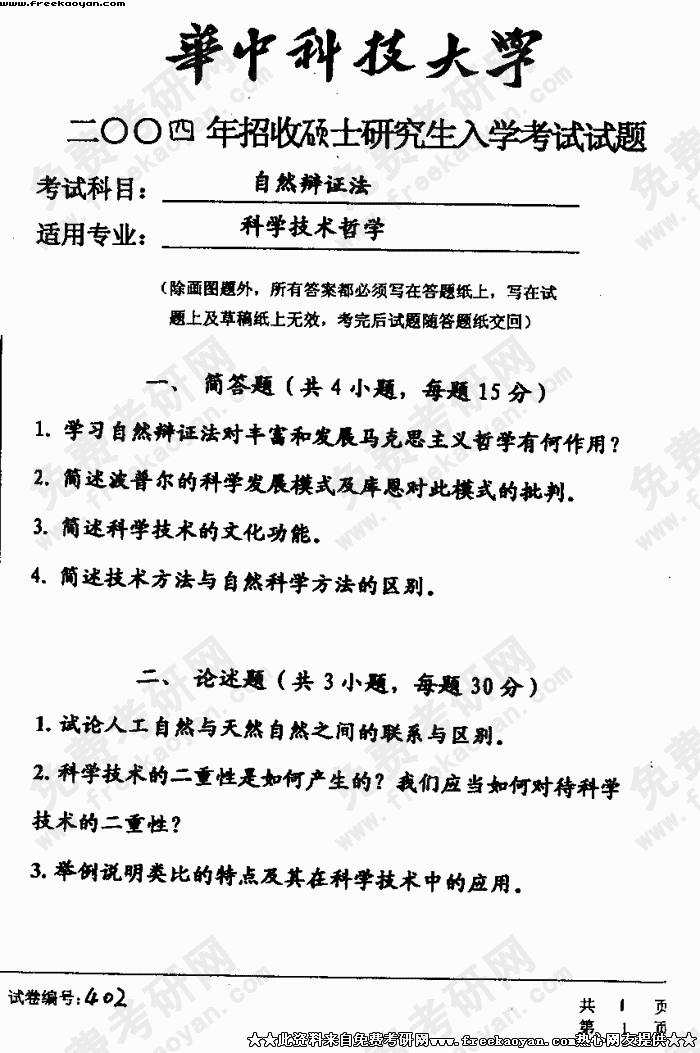 www.freekaoyan.com
華中科技大学
二〇〇四年招收硕士研究生入学考试试题
考试科目: 自然辩证法
适用专业: 科学技术哲学
（除画图题外，所有答案都必须写在答题纸上，写在试
题上及草稿纸上无效，考完后试题随答题纸交回）
一、 简答题（共4小题，每题15分）
1. 学习自然辩证法对丰富和发展马克思主义哲学有何作用？
2. 简述波普尔的科学发展模式及库恩对此模式的批判。
3. 简述科学技术的文化功能。
4. 简述技术方法与自然科学方法的区别。
二、 论述题（共3小题，每题30分）
1. 试论人工自然与天然自然之间的联系与区别。
2. 科学技术的二重性是如何产生的？我们应当如何对待科学
技术的二重性？
3. 举例说明类比的特点及其在科学技术中的应用。
试卷编号: 402
共 1 页
第 1 页
★★此资料来自免费考研网www.freekaoyan.com热心网友提供★★
免费考研网
www.freekaoyan.com